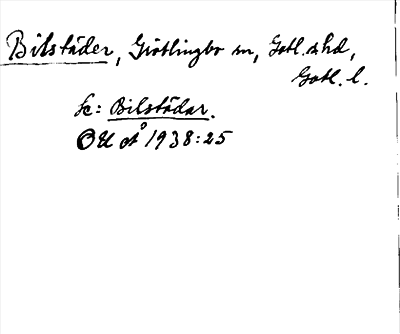 Bilstäder, Grötlingbo sn, Gotl. s hd,
Gotl. l.
Se: Bilstädar.
OUÅ 1938:25